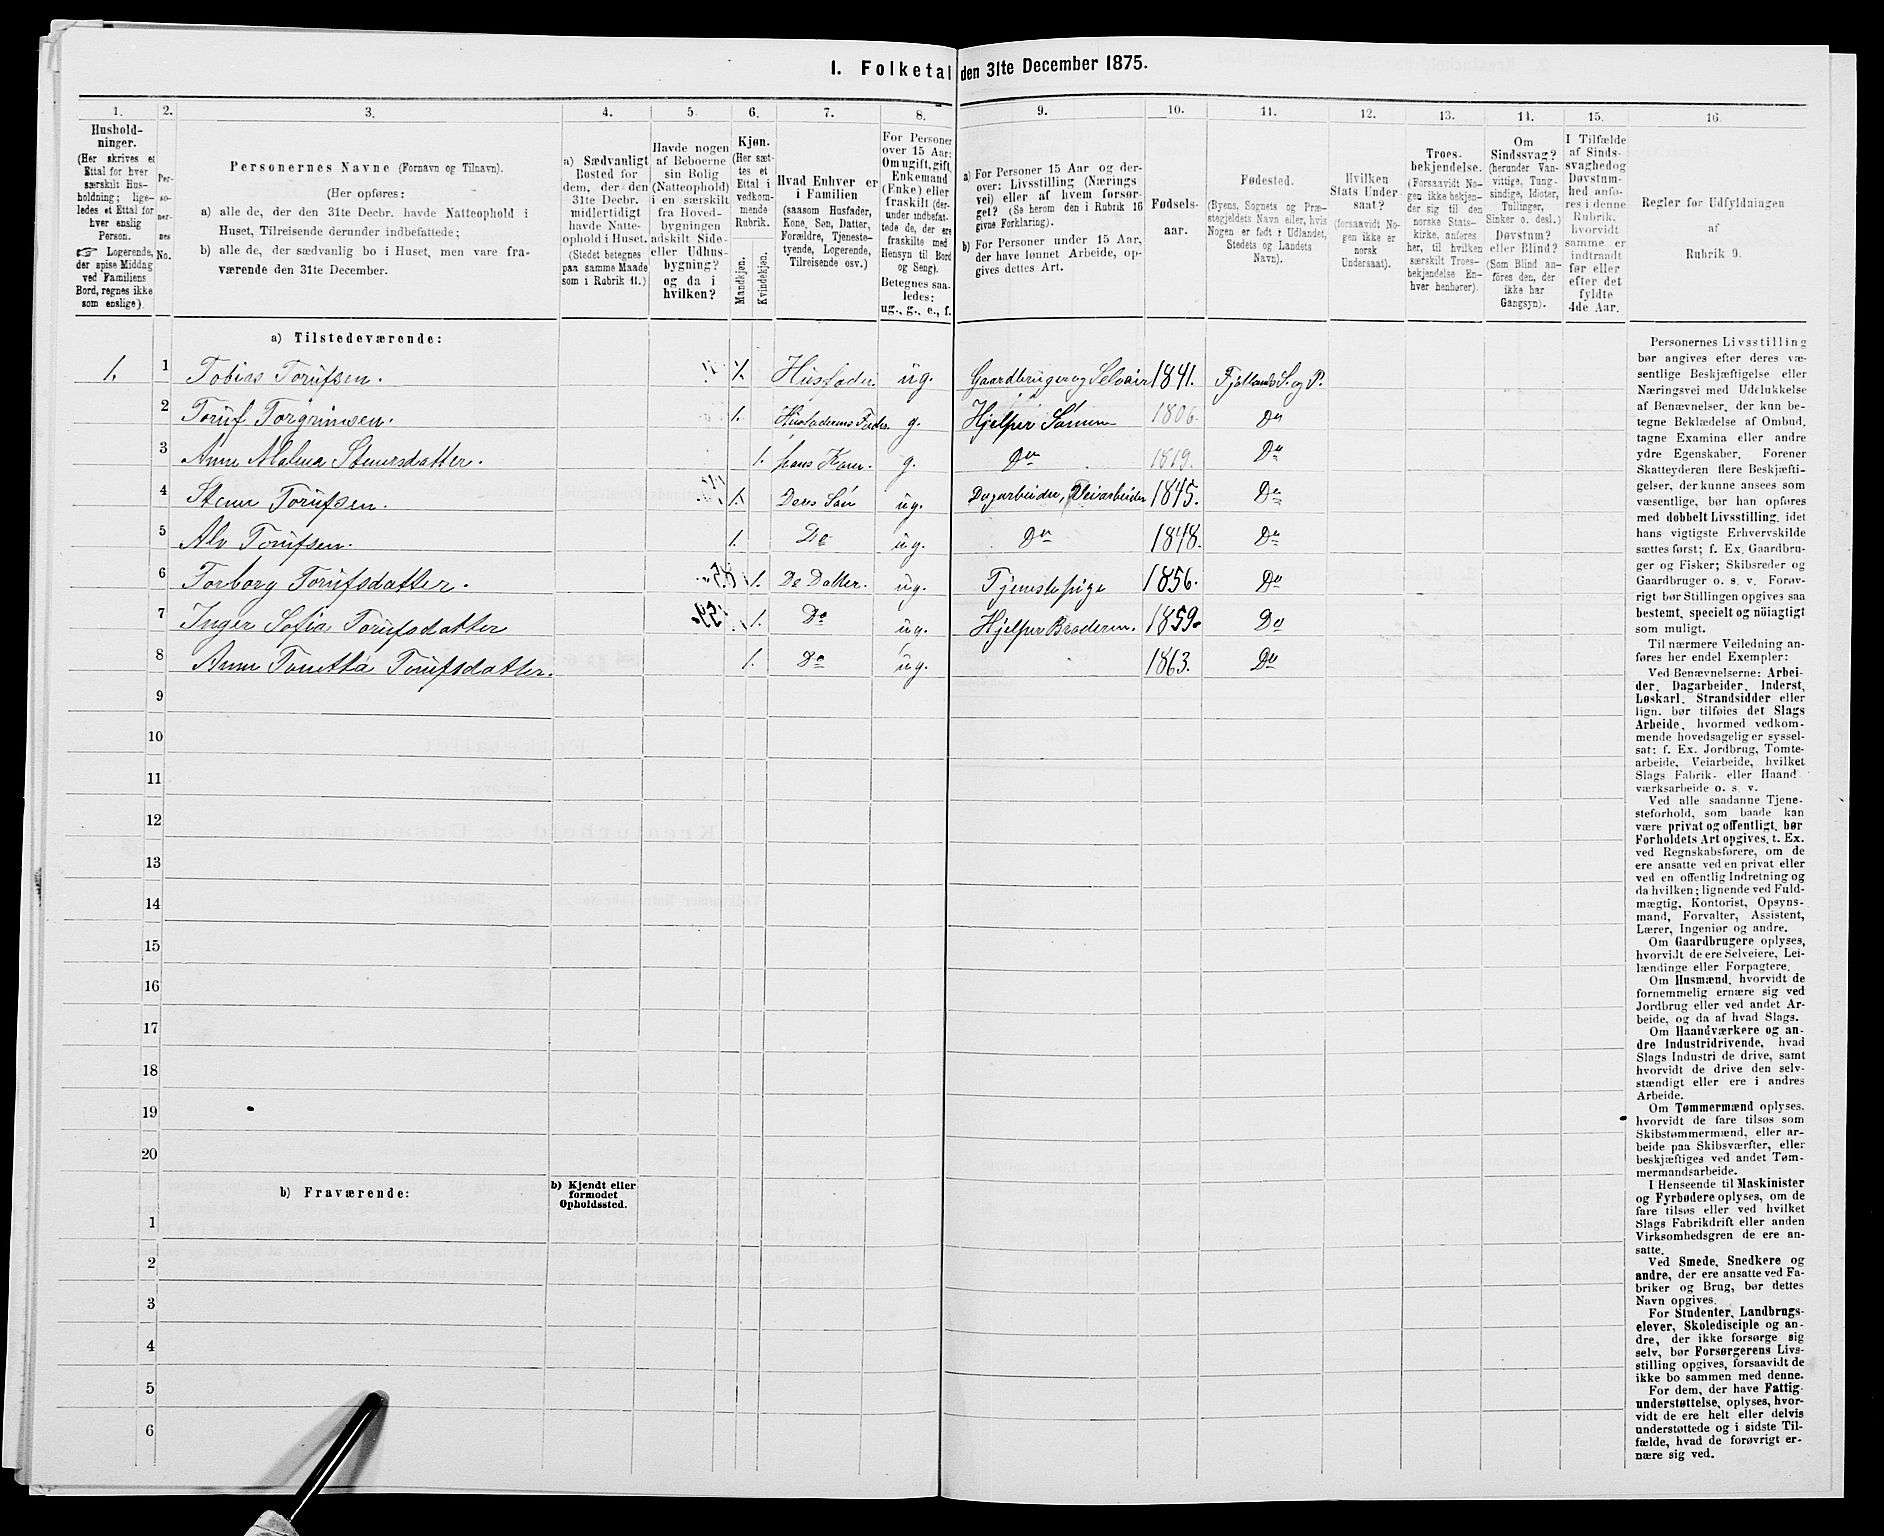 1. Folketal den 31te December 1875.
1. 2. 3. 4. 5. 6. 7. 8. 9. 10. 11. 12. 13. 14. 15. 16.
Hushold-
ninger.
(Her skrives et
Ettal for hver
særskilt Hus-
holdning; lige-
ledes et Ettal for
hver enslig
Person.
☞ Logerende,
der spise Middag
ved Familiens
Bord, regnes ikke
som enslige).
Per-
so-
ner-
nes
No.
Personernes Navne (Fornavn og Tilnavn).
(Her opføres:
a) alle de, der den 31te Decbr. havde Natteophold i
Huset, Tilreisende derunder indbefattede;
b) alle de, der sædvanlig bo i Huset, men vare fra-
værende den 31te December.
a) Sædvanligt
Bosted for
dem, der den
31te Decbr.
midlertidigt
havde Natte-
ophold i Huset.
(Stedet betegnes
paa samme Maade
som i Rubrik 11.)
Havde nogen
af Beboerne
sin Bolig
(Natteophold)
i en særskilt
fra Hoved-
bygningen
adskilt Side-
eller Udhus-
bygning?
og da i
hvilken?
Kjøn.
(Her sæt-
tes et
Ettal i
vedkom-
mende
Rubrik.
Mandkjøn.
Kvindekjøn.
Hvad Enhver er
i Familien
(saasom Husfader,
Kone, Søn, Datter,
Forældre, Tjeneste-
tyende, Logerende,
Tilreisende osv.)
For Personer
over 15 Aar:
Om ugift, gift,
Enkemand
(Enke) eller
fraskilt (der-
under indbefat-
tede de, der ere
fraskilte med
Hensyn til Bord
og Seng).
Betegnes saa-
ledes:
ug., g., e., f.
a) For Personer 15 Aar og der-
over: Livsstilling (Nærings
vei) eller af hvem forsør-
get? (Se herom den i Rubrik 16
givne Forklaring).
b) For Personer under 15 Aar,
der have lønnet Arbeide, op-
gives dettes Art.
Fødsels-
aar.
Fødested.
(Byens, Sognets og Præ-
stegjeldets Navn eller, hvis
Nogen er født i Udlandet,
Stedets og Landets
Navn).
Hvilken
Stats Under-
saat?
(forsaavidt No-
gen ikke er
norsk
Undersaat).
Troes-
bekjendelse.
(Forsaavidt No-
gen ikke bekjen-
der sig til den
norske Stats-
kirke, anføres
her, til hvilken
særskilt Troes-
bekjendelse En-
hver henhører).
Om
Sindssvag?
(herunder Van-
vittige, Tung-
sindige, Idioter,
Tullinger,
Sinker o. desl.)
Døvstum?
eller Blind?
(Som Blind an-
føres den, der
ikke har
Gangsyn).
I Tilfælde
af Sinds-
svaghed og
Døvstum-
hed anfø-
res i denne
Rubrik,
hvorvidt
samme er
indtraadt
før eller
efter det
fyldte
4de Aar.
Regler for Udfyldningen
af
Rubrik 9.
a) Tilstedeværende:
1. 1 Tobias Torufsen. 1. Husfader ug. Gaardbruger og Selveier 1841. Fjotlands S. og P.
2 Toruf Torgrimsen. 1. Husfaderens Fader g. Hjelper Sønnen 1806. Do
3 Anne Malena Stenersdatter. 1. hans Kone. g. Do 1819. Do
4 Stener Torufsen. 1. Deres Søn ug. Dagarbeider, Veiarbeider 1845. Do
5 Alv Torufsen. 1. Do ug. Do 1848. Do
6 Torborg Torufsdatter. 1. De Datter. ug. Tjenestepige 1856. Do
7 Inger Sofia Torufsdatter 1. Do ug. Hjelper Broderen. 1859. Do
8 Anne Tonetta Torufsdatter. 1. Do ug. 1863. Do
9
10
11
12
13
14
15
16
17
18
19
20
b) Fraværende:
b) Kjendt eller
formodet
Opholdssted.
1
2
3
4
5
6
Personernes Livsstilling
bør angives efter deres væ-
sentlige Beskjæftigelse eller
Næringsvei med Udelukkelse
af Benævnelser, der kun be-
tegne Beklædelse af Ombud,
tagne Examina eller andre
ydre Egenskaber. Forener
Skatteyderen flere Beskjæfti-
gelser, der kunne ansees som
væsentlige, bør han opføres
med dobbelt Livsstilling, idet
hans vigtigste Erhvervskilde
sættes først; f. Ex. Gaardbru-
ger og Fisker; Skibsreder og
Gaardbruger o. s. v. Forøv-
rigt bør Stillingen opgives saa
bestemt, specielt og nøiagtigt
som muligt.
Til nærmere Veiledning an-
føres her endel Exempler:
Ved Benævnelserne: Arbei-
der, Dagarbeider, Inderst,
Løskarl, Strandsidder eller
lign. bør tilføies det Slags
Arbeide, hvormed vedkom-
mende hovedsagelig er syssel-
sat; f. Ex. Jordbrug, Tomte-
arbeide, Veiarbeide, hvilket
Slags Fabrik- eller Haand
værksarbeide o. s. v.
Ved alle saadanne Tjene-
steforhold, som baade kan
være privat og offentligt, bør
Forholdets Art opgives, t. Ex.
ved Regnskabsførere, om de
ere ansatte ved en privat eller
ved en offentlig Indretning og
da hvilken; lignende ved Fuld-
mægtig, Kontorist, Opsyns-
mand, Forvalter, Assistent,
Lærer, Ingeniør og andre.
Om Gaardbrugere oplyses,
hvorvidt de ere Selveiere, Lei-
lændinge eller Forpagtere.
Om Husmænd, hvorvidt de
fornemmelig ernære sig ved
Jordbrug eller ved andet Ar-
beide, og da af hvad Slags.
Om Haandværkere og an-
dre Industridrivende, hvad
Slags Industri de drive, samt
hvorvidt de drive den selv-
stændigt eller ere i andres
Arbeide.
Om Tømmermænd oplyses,
hvorvidt de fare tilsøs som
Skibstømmermænd, eller ar-
beide paa Skibsværfter, eller
beskjæftiges ved andet Tøm-
mermandsarbeide.
I Henseende til Maskinister
og Fyrbødere oplyses, om de
fare tilsøs eller ved hvilket
Slags Fabrikdrift eller anden
Virksomhedsgren de ere an-
satte.
Ved Smede, Snedkere og
andre, der ere ansatte ved Fa-
briker og Brug, bør dettes
Navn opgives.
For Studenter, Landbrugs-
elever, Skoledisciple og an-
dre, der ikke forsørge sig
selv, bør Forsørgerens Livs-
stilling opgives, forsaavidt de
ikke bo sammen med denne.
For dem, der have Fattig-
understøttelse, oplyses, hvor-
vidt de ere helt eller delvis
understøttede og i sidste Til-
fælde, hvad de forøvrigt er-
nære sig ved.